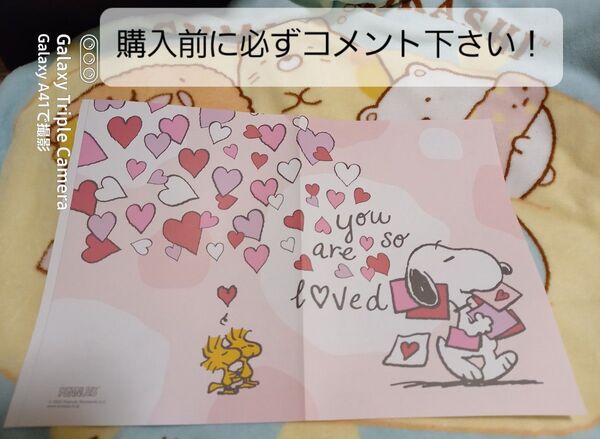 購入前に必ずコメント下さい！
Galaxy Triple Camera
Galaxy A41で撮影
you
are so
l♡ved
PEANUTS